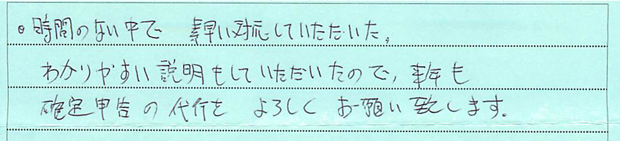 。時間のない中で 素早い対応していただいた。
わかりやすい説明もしていただいたので、来年も
確定申告の代行を よろしく お願い致します。